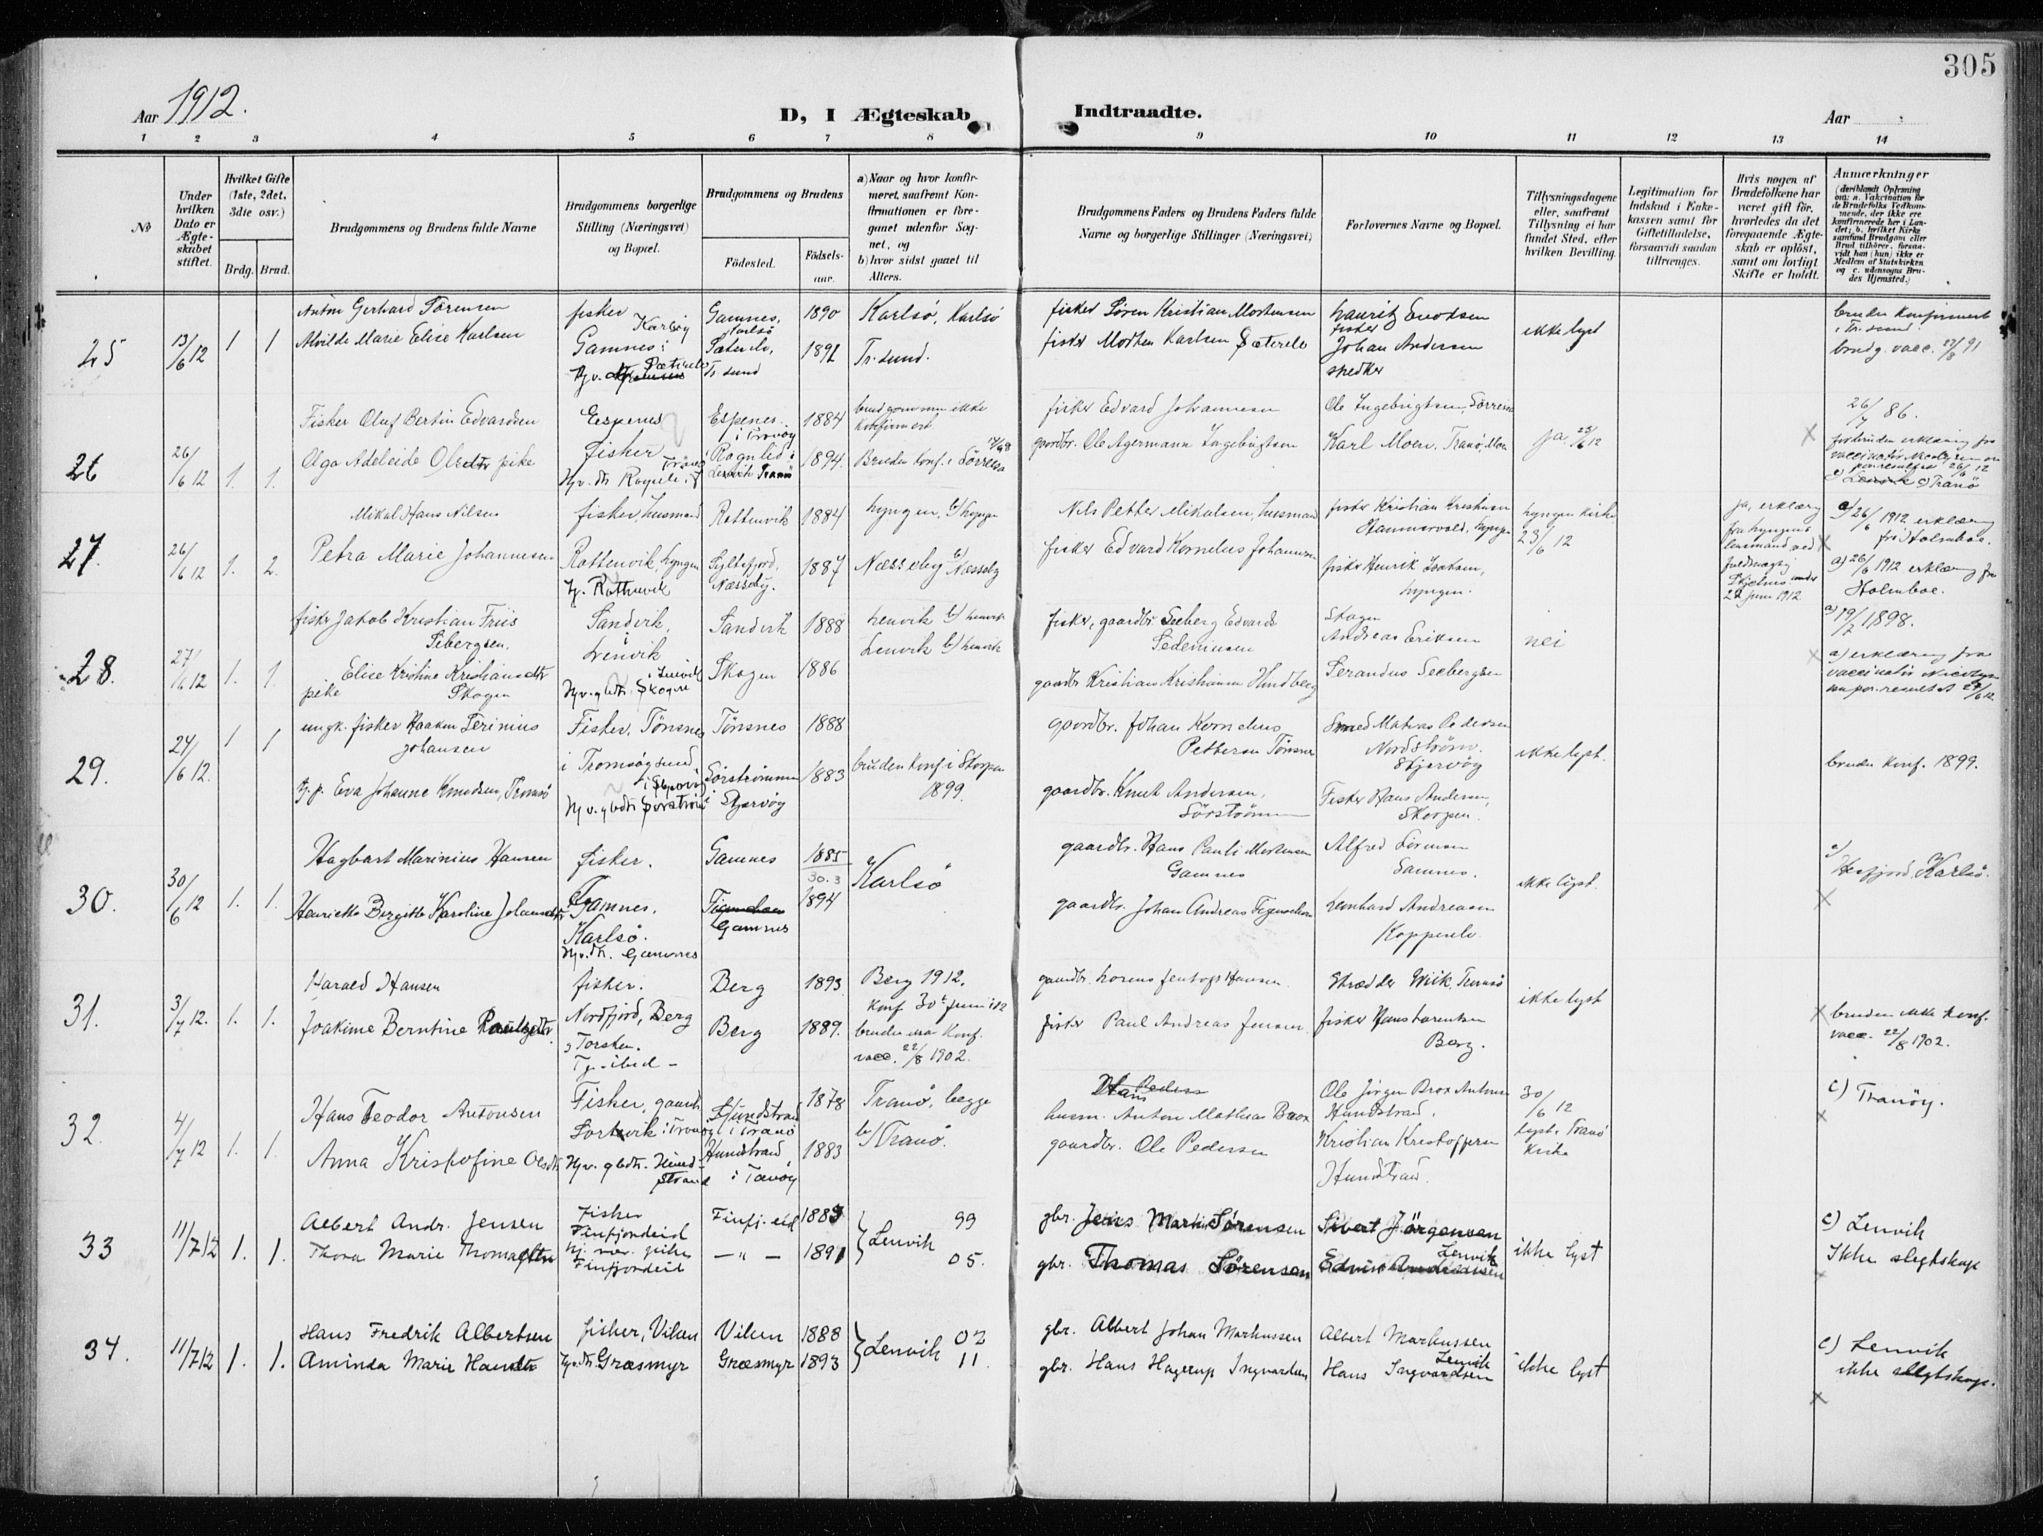 305
Aar 1912.
D, I Ægteskab Indtraadte.
Aar
1 2 3 4 5 6 7 8 9 10 11 12 13 14
No
Under hvilken Dato er Ægteskabet stiftet.
Hvilket Gifte (1ste, 2det, 3die osv.)
Brdg. Brud.
Brudgommens og Brudens fulde Navne
Brudgommens borgerlige Stilling (Næringsvei) og Bopæl.
Brudgommens og Brudens
Fødested. Fødselsaar.
a) Naar og hvor konfirmeret, saafremt Konfirmationen er foregaaet udenfor Sognet, og
b) hvor sidst gaaet til Alters.
Brudgommens Faders og Brudens Faders fulde Navne og borgerlige Stillinger (Næringsvei)
Forlovernes Navne og Bopæl.
Tillysningsdagene eller, saafremt Tillysning ei har fundet Sted, efter hvilken Bevilling.
Legitimation for Indskud i Enkekassen samt for Giftetilladelse, forsaavidt saadan tiltrænges.
Hvis nogen af Brudefolkene har været gift før, hvorledes da det foregaaende Ægteskab er opløst, samt om lovligt Skifte er holdt.
Anmærkninger
(deriblandt Oplysning om: a. Vaccination for de Brudefolks Vedkommende, der ikke ere konfirmerede her i Landet; b. hvilket Kirkesamfund Brudgom eller Brud tilhører, forsaavidt han (hun) ikke er Medlem af Statskirken og c. udensogns Brudes Hjemsted.)
25
13/6 12
1 1
Anton Gerhard Sørensen
Alvilde Marie Elise Karlsen
fisker
Karlsøy
Gamnes
Gamnes, Karlsø
1890
1892
Karlsø, Karlsø
Tr.sund.
fisker Søren Kristian Mortensen
fisker Morthen Karlsen Sæterelv
Laurits Enoksen
fisker
Johan Andersen
snedker
ikke lyst
bruden konfirmert
i Tr.sund
brudg. vacc.
26
26/6 12
1. 1.
Fisker Oluf Bertin Edvardsen
Olga Adeleide Olsdtr pike
Espenes
fisker
Espenes
i Tranøy
1884
1894.
brudgommen ikke
konfirmert
Bruden konf. i Sørreisa
fisker Edvard Johannesen
gaardbr. Ole Agermann Ingebrigtsen
Ole Ingebrigtsen, Sørreisa
Karl Moen, Tranø, Moen
ja 23/6 12
26/7 86.
for bruden erklæring fra
27.
26/6 12
1. 2.
Mikal Hans Nilsen
Petra Marie Johannesen
fisker, husmand
Rottenvik, Lyngen
Rottenvik
Syltefjord,
Næsseby.
1884
1887
Lyngen, b) Lyngen
Næsseby b) Næsseby
Nils Petter Mikalsen, husmand
fisker Edvard Kornelius Johannesen
fisker Kristian Kristiansen
Hammervold, Lyngen
fisker Henrik Isaksen,
Lyngen.
Lyngen kirke
23/6 12
ja, erklæring
fra Lyngens
lensmand ved
22 juni 1912.
a) 26/6 1912 erklæring
fra Holmboe.
a) 26/6 1912 erklæring fra
Holmboe.
28.
27/6 12
1. 1.
fisker Jakob Kristian Friis
Sibergsen.
Elise Kristine Kristiansdtr
pike Skogen
Sandvik
i
Lenvik
Sandvik
Skogen
1888
1886
Lenvik b) Lenvik
Lenvik b) Lenvik
fisker, gaardbr. Seeberg Edvard
gaardbr Kristian Kristiansen Hindberg
Skogen
Andreas Eriksen
Serandus Seebergsen
nei
a) 19/7 1898.
a) erklæring fra
29.
27/6 12.
1 1
ungk. fisker Haaken Serinius
Johansen
Eva Johanne Knudsen, Tromsø
Fisker, Tønsnes
i Tromsøysund
Tønsnes
Sørstrømmen
i Skjervøy
1888
1883
bruden konf i Skorpen
1899.
gaardbr. Johan Kornelius
Petterson Tønsnes
gaardbr. Knut Andersen,
Sørstrømmen
Smed Matias Pedersen
Nordstrøm.
Skjervøy
Fisker Hans Andersen,
Skorpen.
ikke lyst.
bruden konf. 1899.
30.
30/6 12
1. 1.
Hagbart Marinius Hansen
Henriette Bergitte Karoline Johansdtr
fisker.
Gamnes.
Karlsø.
Gamnes
Gamnes
1885
30.3
1894
Karlsø
gaardbr. Hans Pauli Mortensen
Gamnes
gaardbr. Johan Andreas
Alfred Sørensen
Gamnes.
Leonhard Andreasen
Kopperelv.
ikke lyst.
Karlsø.
31.
3/7 12.
1. 1.
Harald Hansen
Joakime Berntine Paulsdtr.
fisker.
Nordfjord, Berg
Torsken.
Berg
Berg
1893
1889.
Berg 1912.
konf 30te juni 1912
bruden ikke konf.
vacc. 22/8 1902.
gaardbr. Lorens Jentoft Hansen.
fisker Paul Andreas Jensen.
Skrædder Wiik, Tromsø
fisker Hans Larentsen
Berg.
ikke lyst
bruden ikke konf.
vacc. 22/8 1902.
32.
4/7 12
1. 1.
Hans Teodor Antonsen
Anna Kristofine Olsdtr
Fisker, gaardbr
i Tranøy
Hundstrand
i Tranø
Hundstrand
i Tranøy
1878
1883
Tranø, begge
b) Tranø.
Hans Peders
husm. Anton Mathias Brox
gaardbr. Ole Pedersen
Ole Jørgen Brox Antonsen
Hundstrand.
Kristian Kristoffersen
Hundstrand.
30/6 12
lyst i Tranø
Kirke
c) Tranøy.
33
11/7 12
1. 1.
Albert Andr. Jensen
Thora Marie Thomasdtr
Fisker
Finfjordeid
Finfjordeid
Finfj.eid
— " —
1883
1891
Lenvik
99
05.
gbr. Jens Martin Sørensen
gbr. Thomas Sørensen
Sivert Jørgensen
Lenvik
Edvin Andreassen
ikke lyst
c) Lenvik
Ikke slegtskap
34.
11/7 12
1. 1.
Hans Fredrik Albertsen
Aminda Marie Hansdtr
fisker, Viken
Græsmyr
Viken
Græsmyr
1888
1893
Lenvik
02
11.
gbr. Albert Johan Markussen
gbr. Hans Hagerup Ingvardsen
Albert Markussen
Lenvik
Hans Ingvardsen
ikke lyst
c) Lenvik
ikke slegtskap.